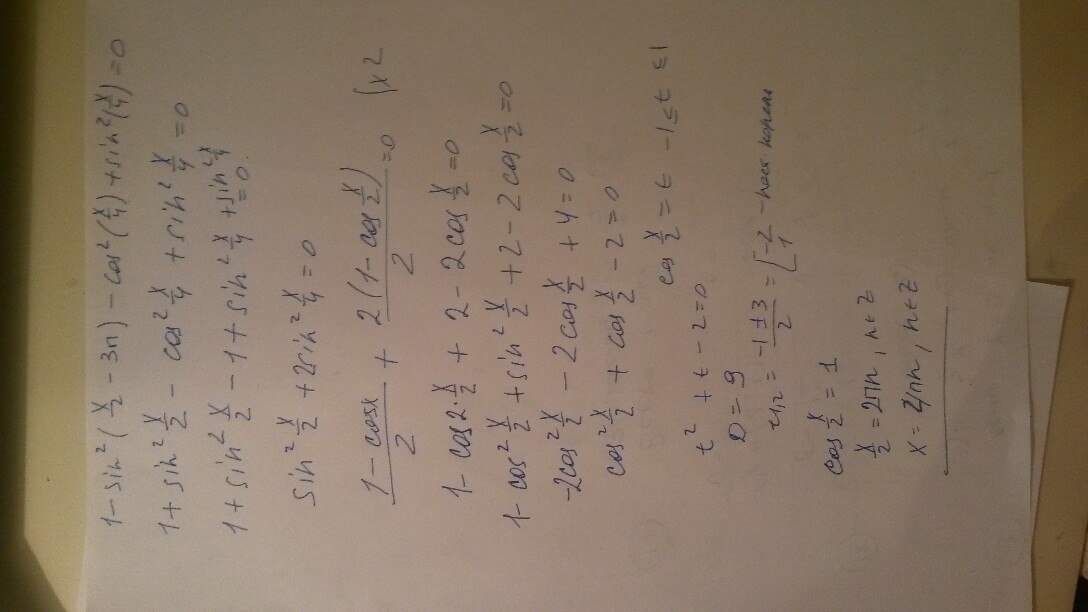 1 - sin²(x/2 - 3π) - cos²(x/4) + sin²(x/4) = 0
1 + sin² x/2 - cos² x/4 + sin² x/4 = 0
1 + sin² x/2 - 1 + sin² x/4 + sin² x/4 = 0.
sin² x/2 + 2sin² x/4 = 0
(1 - cosx)/2 + 2(1 - cos x/2)/2 = 0 (x2
1 - cos2·x/2 + 2 - 2cos x/2 = 0
1 - cos² x/2 + sin² x/2 + 2 - 2cos x/2 = 0
-2cos² x/2 - 2cos x/2 + 4 = 0
cos² x/2 + cos x/2 - 2 = 0
cos x/2 = t -1 ≤ t ≤ 1
t² + t - 2 = 0
D = 9
t1,2 = (-1 ± 3)/2 = [-2 - пост корень
1
cos x/2 = 1
x/2 = 2πn, n∈Z
x = 4πn, n∈Z